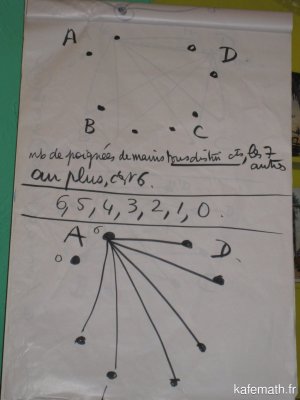 A
D
B
C
nb de poignées de mains tous distincts, les 7
autres
au plus, c'est 6.
6, 5, 4, 3, 2, 1, 0.
A 6
D.
0
kafemath.fr